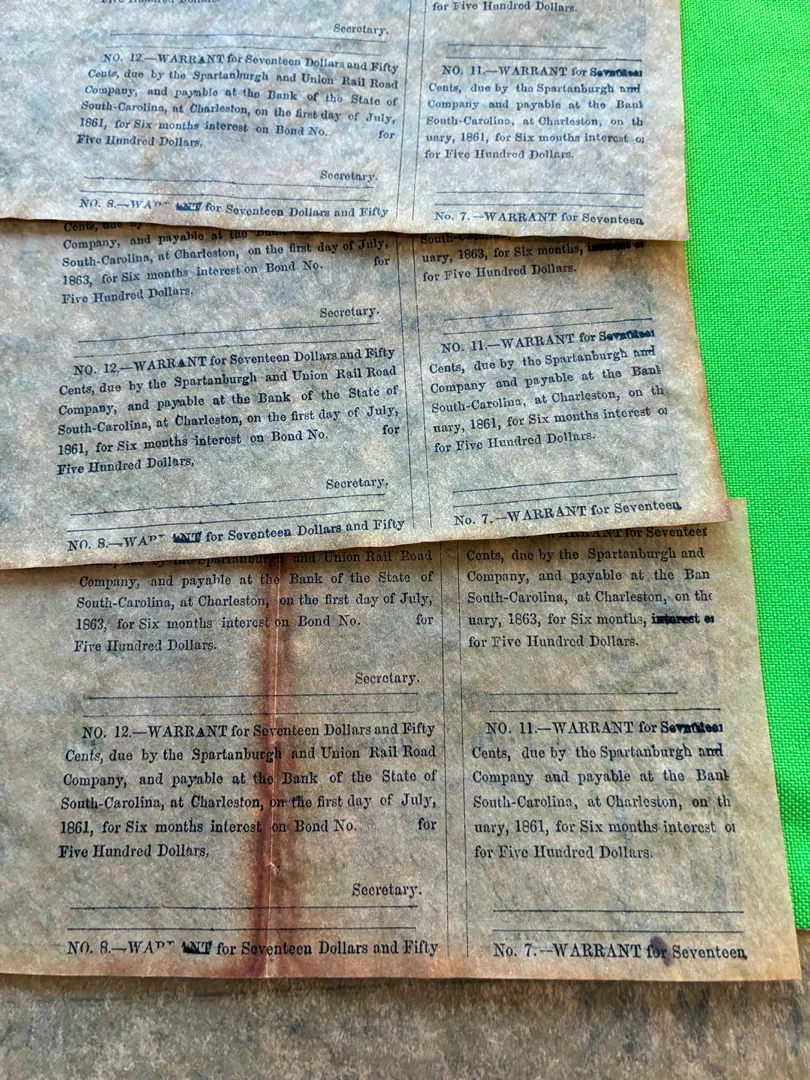 Five Hundred Dollars.
Secretary.
NO. 12.—WARRANT for Seventeen Dollars and Fifty
Cents, due by the Spartanburgh and Union Rail Road
Company, and payable at the Bank of the State of
South-Carolina, at Charleston, on the first day of July,
1861, for Six months interest on Bond No. for
Five Hundred Dollars,
Secretary.
NO. 8.—WARRANT for Seventeen Dollars and Fifty
for Five Hundred Dollars.
NO. 11.—WARRANT for Seventeen
Cents, due by the Spartanburgh and
Company and payable at the Bank
South-Carolina, at Charleston, on th
uary, 1861, for Six months interest o
for Five Hundred Dollars.
No. 7.—WARRANT for Seventeen
Cents, due by
Company, and payable at the
South-Carolina, at Charleston, on the first day of July,
1863, for Six months interest on Bond No. for
Five Hundred Dollars.
Secretary.
NO. 12.—WARRANT for Seventeen Dollars and Fifty
Cents, due by the Spartanburgh and Union Rail Road
Company, and payable at the Bank of the State of
South-Carolina, at Charleston, on the first day of July,
1861, for Six months interest on Bond No. for
Five Hundred Dollars,
Secretary.
NO. 8.—WARRANT for Seventeen Dollars and Fifty
South-Carolina,
uary, 1863, for Six months,
for Five Hundred Dollars.
NO. 11.—WARRANT for Seventeen
Cents, due by the Spartanburgh and
Company and payable at the Bank
South-Carolina, at Charleston, on th
uary, 1861, for Six months interest or
for Five Hundred Dollars.
No. 7.—WARRANT for Seventeen
by the Spartanburgh and Union Rail Road
Company, and payable at the Bank of the State of
South-Carolina, at Charleston, on the first day of July,
1863, for Six months interest on Bond No. for
Five Hundred Dollars.
Secretary.
NO. 12.—WARRANT for Seventeen Dollars and Fifty
Cents, due by the Spartanburgh and Union Rail Road
Company, and payable at the Bank of the State of
South-Carolina, at Charleston, on the first day of July,
1861, for Six months interest on Bond No. for
Five Hundred Dollars,
Secretary.
NO. 8.—WARRANT for Seventeen Dollars and Fifty
WARRANT for Seventeen
Cents, due by the Spartanburgh and
Company, and payable at the Ban
South-Carolina, at Charleston, on the
uary, 1863, for Six months, interest o
for Five Hundred Dollars.
NO. 11.—WARRANT for Seventeen
Cents, due by the Spartanburgh and
Company and payable at the Bank
South-Carolina, at Charleston, on th
uary, 1861, for Six months interest or
for Five Hundred Dollars.
No. 7.—WARRANT for Seventeen